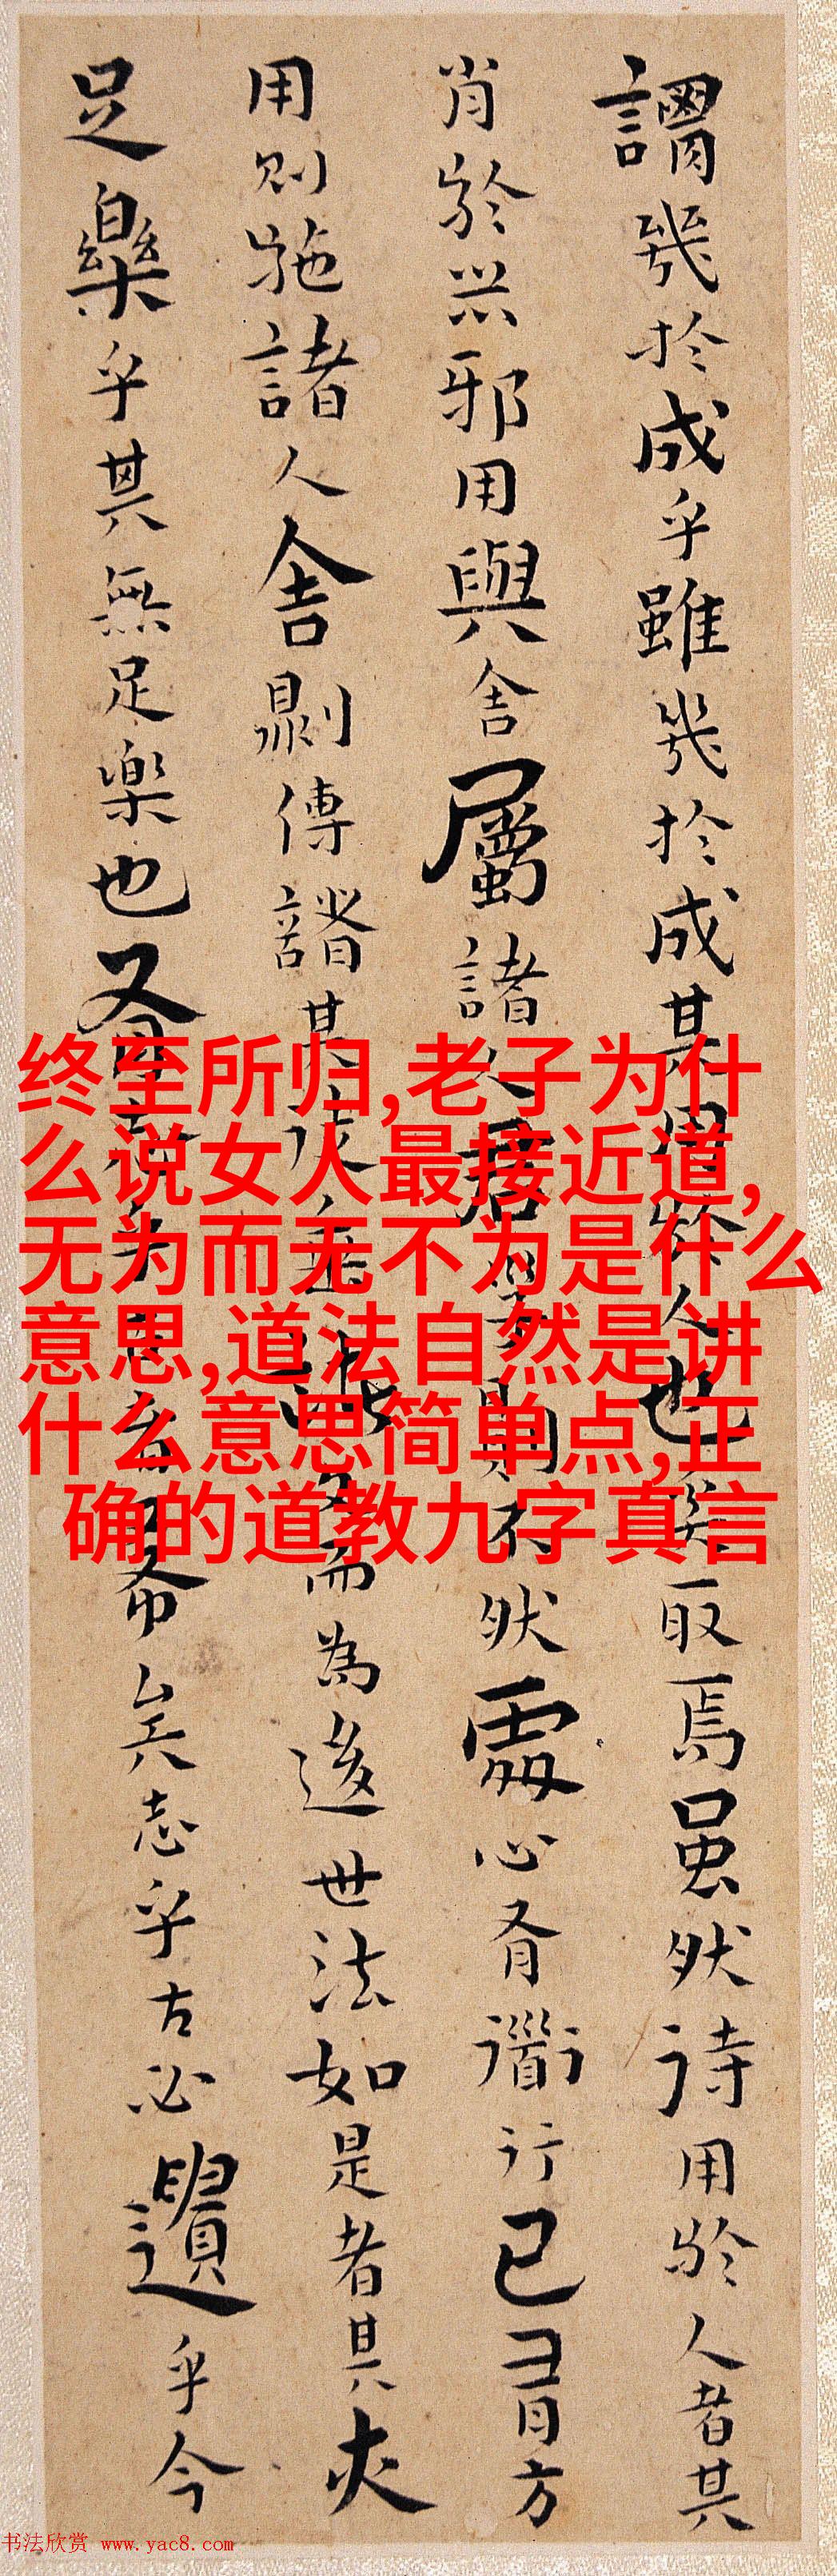 謂幾於成乎雖幾於成其用於人也奚取焉雖然待用於人者其
肖於器邪用與舍屬諸人君子則不然處心有道行己有方
用則施諸人舍則傳諸其徒垂諸文而為後世法如是者其亦
足樂乎其無足樂也有志乎古者希矣志乎古必遺乎今
终至所归,老子为什
么说女人最接近道,
无为而无不为是什么
意思,道法自然是讲
什么意思简单点,正
确的道教九字真言
书法欣赏 www.yac8.com